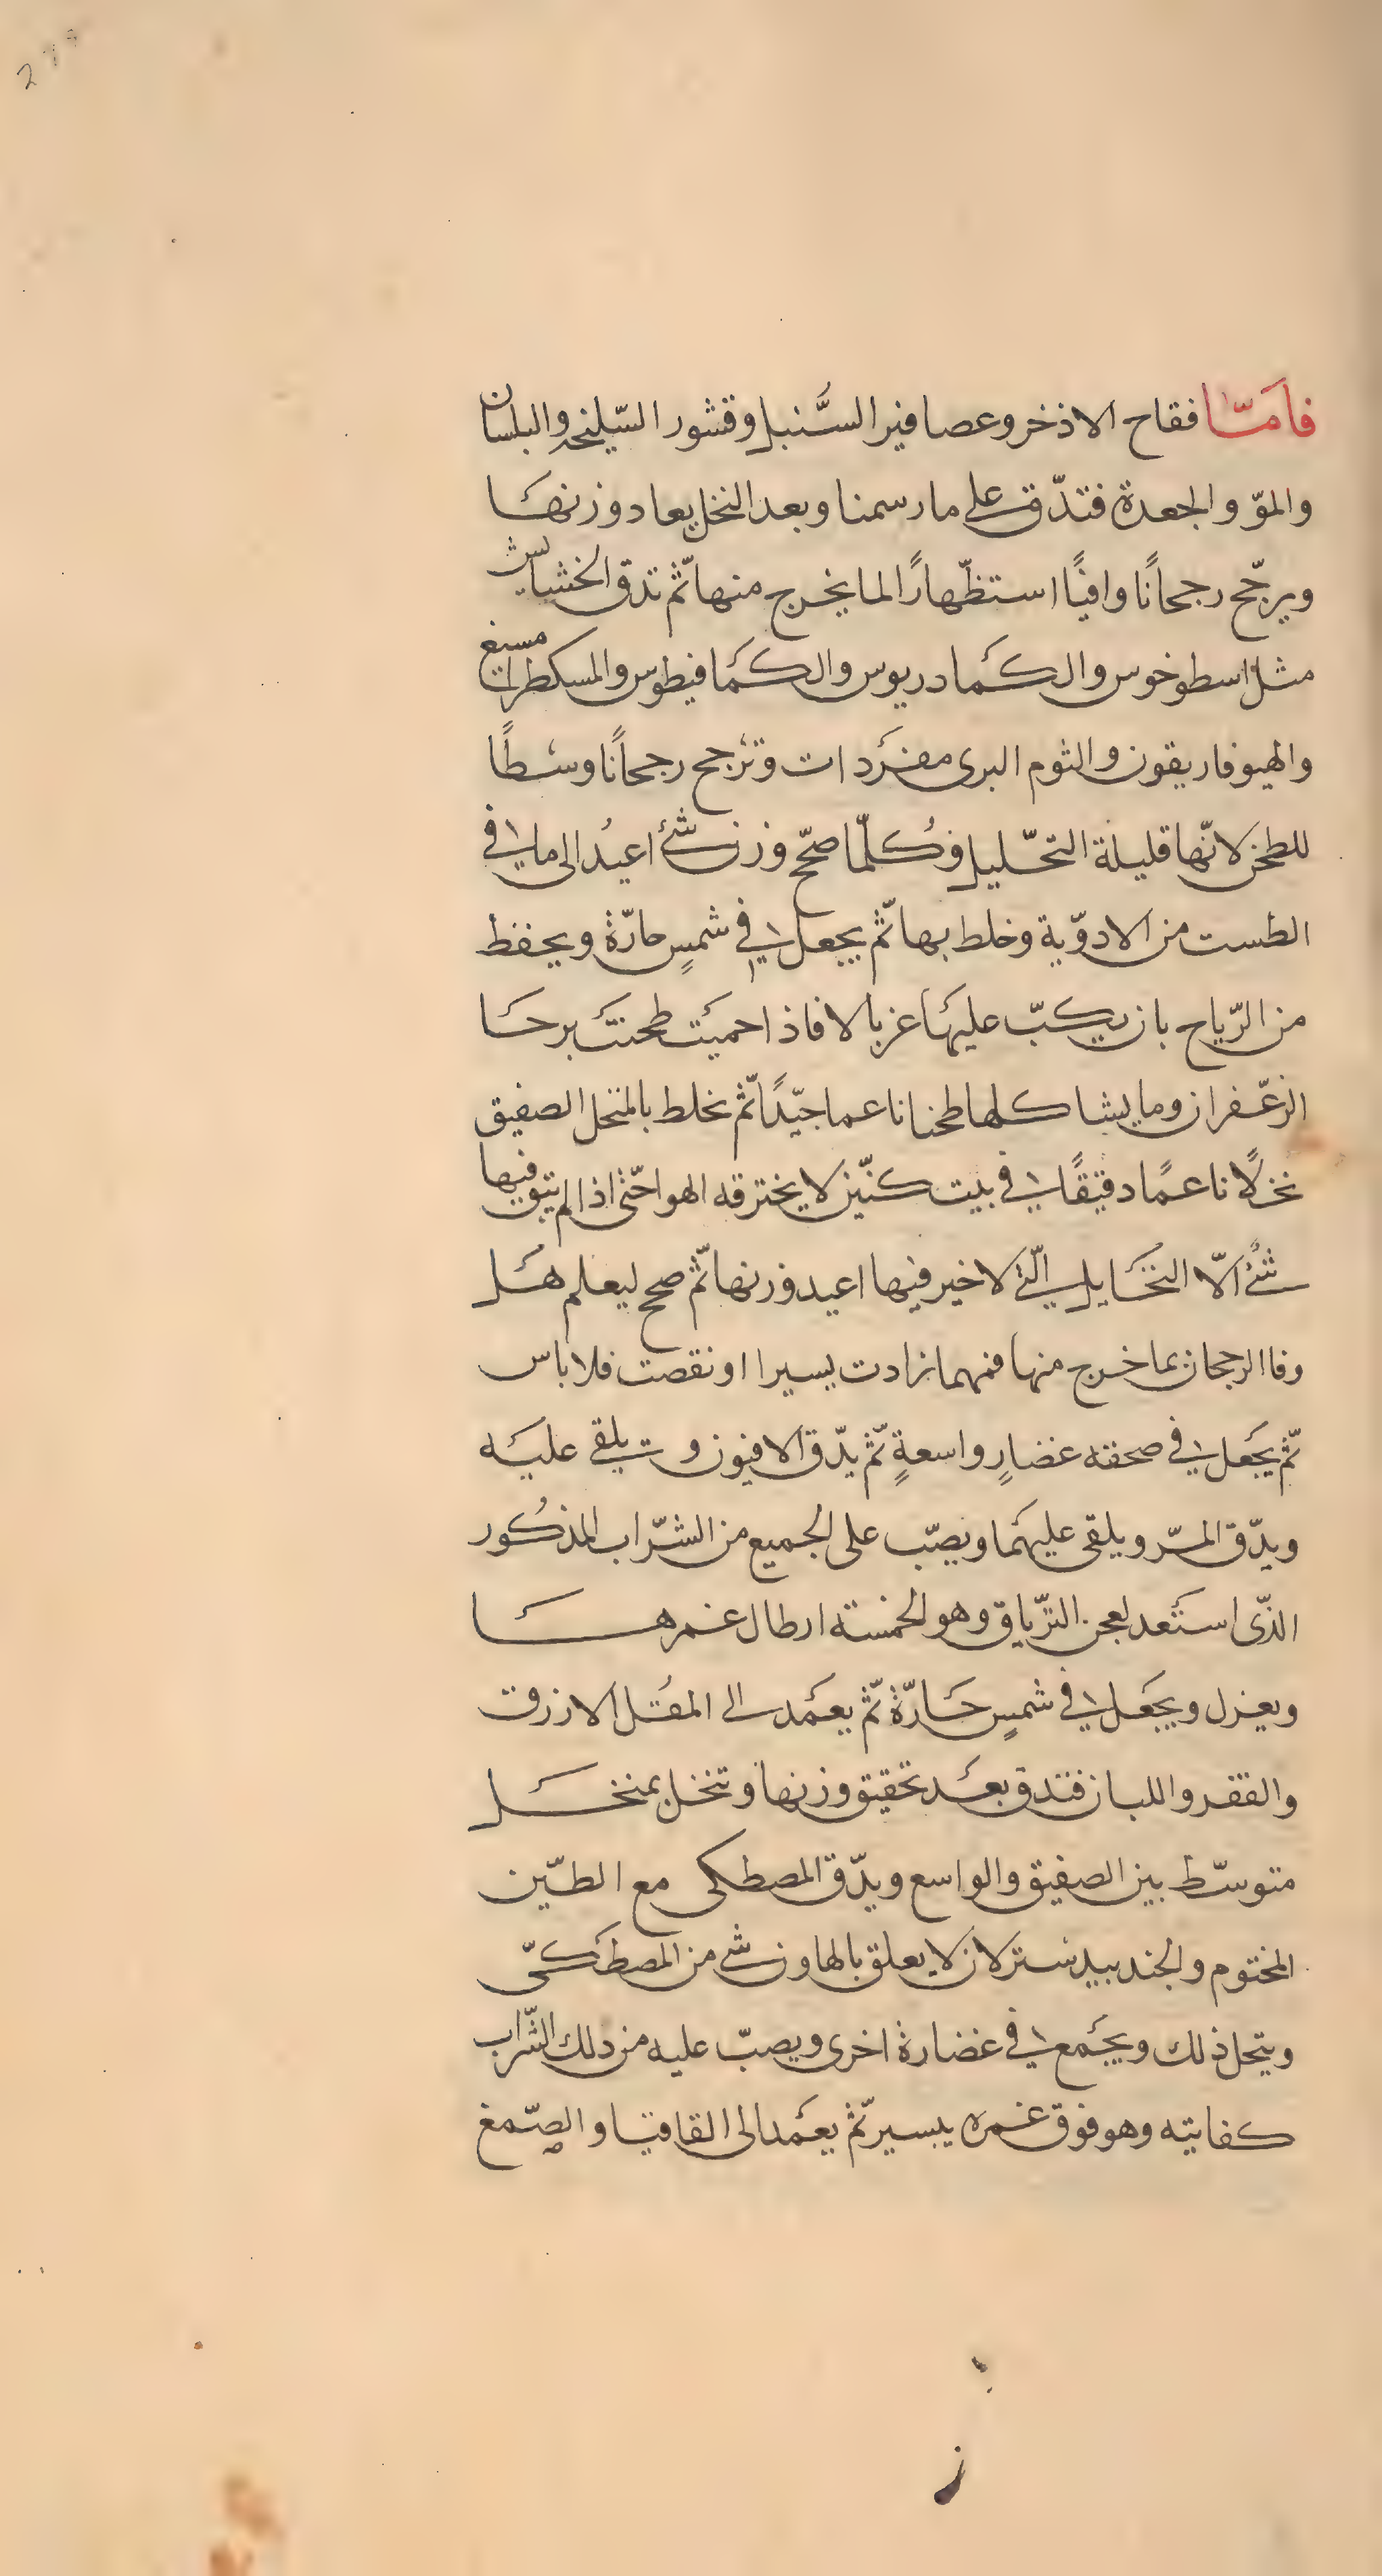 فامّا فقاح الاذخر وعصافير السُّنبل وقشور السّليخه والبلسان
والموّ والجعدة فتدّق على ما رسمنا وبعد النخل يعاد وزنهَا
ويرجّح رجحانًا وافيًا استظّهارًا لما يخرج منها ثّم تدق الخشايش
مثل اسطوخوس والكَمادريوس والكَمافيطوس والمسكطرامسيغ
والهيوفاريقون والثوم البرى مفرَدات وترَجح رجحانًا وسطًا
للطحن لانّها قليلة التحّليل وكُلّما صحّ وزن شئ اعيدُ الى ما فى
الطست من الادوّية وخلط بها ثّم يجعل فى شمسٍ حارّة ويحفظ
من الرّياح بان يكبّ عليهَا غربالا فاذا حميَت طحنتَ برحَا
الزّعفران وما يشاكلها طحنا ناعما جيّدًا ثّم نخلط بالمنخل الصفيق
نخلاً ناعمًا دقيقًا فى بيت كنّين لا يخترقه الهوا حتّى اذا لم يتبق فيها
شئٌ الاّ النخَايل الّتى لا خير فيها اعيد وزنها ثّم صحح ليعلم هَل
وفا الرجحان بما خرج منها فمهما زادت يسيرا او نقصت فلا باس
ثّم يجَعل فى صحفته غضارٍ واسعةٍ ثّم يدّق الافيون ويلقى عليَه
ويدّق المرّ ويلقى عليهَما ويصبّ على الجميع من الشرّاب المذكُور
الذّى استَعد لعجن الترّياق وهو الخمسته ارطال غمرهَا
ويعزل ويجَعل فى شمسٍ حَارّة ثّم يعمَد الى المقُل الازرق
والقفر واللبان فتدق بعَد تحقيق وزنها وتنخل بمنخَل
متوسّط بين الصفيق والواسع ويدّق المصطكى مع الطّين
المختوم والجندبيدستر لان لا يعلق بالهاون شى من المصطكَىّ
ويتحل ذلك ويجَمع فى غضارة اخرى ويصبّ عليه من ذلك الشّراب
كفايته وهو فوق غمره بيسير ثّم يعمَد الى القاقيا والصّمغ